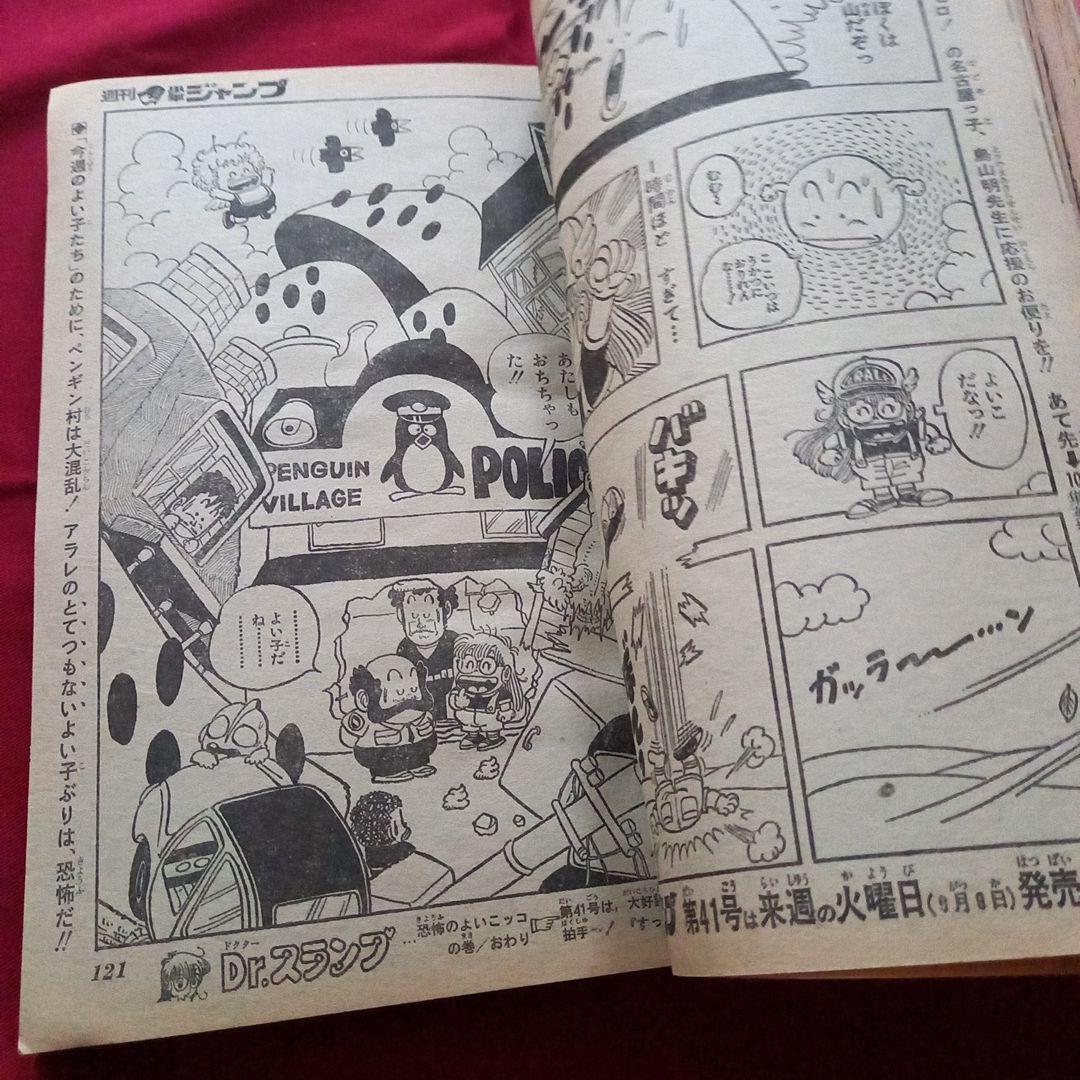 ぼくは
山だぞっ
の名古屋っ子、鳥山明先生に応援のお便りを!! あて先
むむ〜
ここいつは
1時間ほど
すぎて…
よいこ
だなっ!!
バキッ
ガッラ〜〜…ン
第41号は来週の火曜日(9月8日)発売
週刊少年ジャンプ
◆「今週のよい子たち」のために、ペンギン村は大混乱! アラレのとてつもないよい子ぶりは、恐怖だ!!
あたしも
おちちゃっ
た!!
PENGUIN
VILLAGE
POLIC
よい子だ
ね
121
Dr.スランプ
ドクター
恐怖のよいこッコ
の巻/おわり
第41号は、大好
拍手〜!『すっ